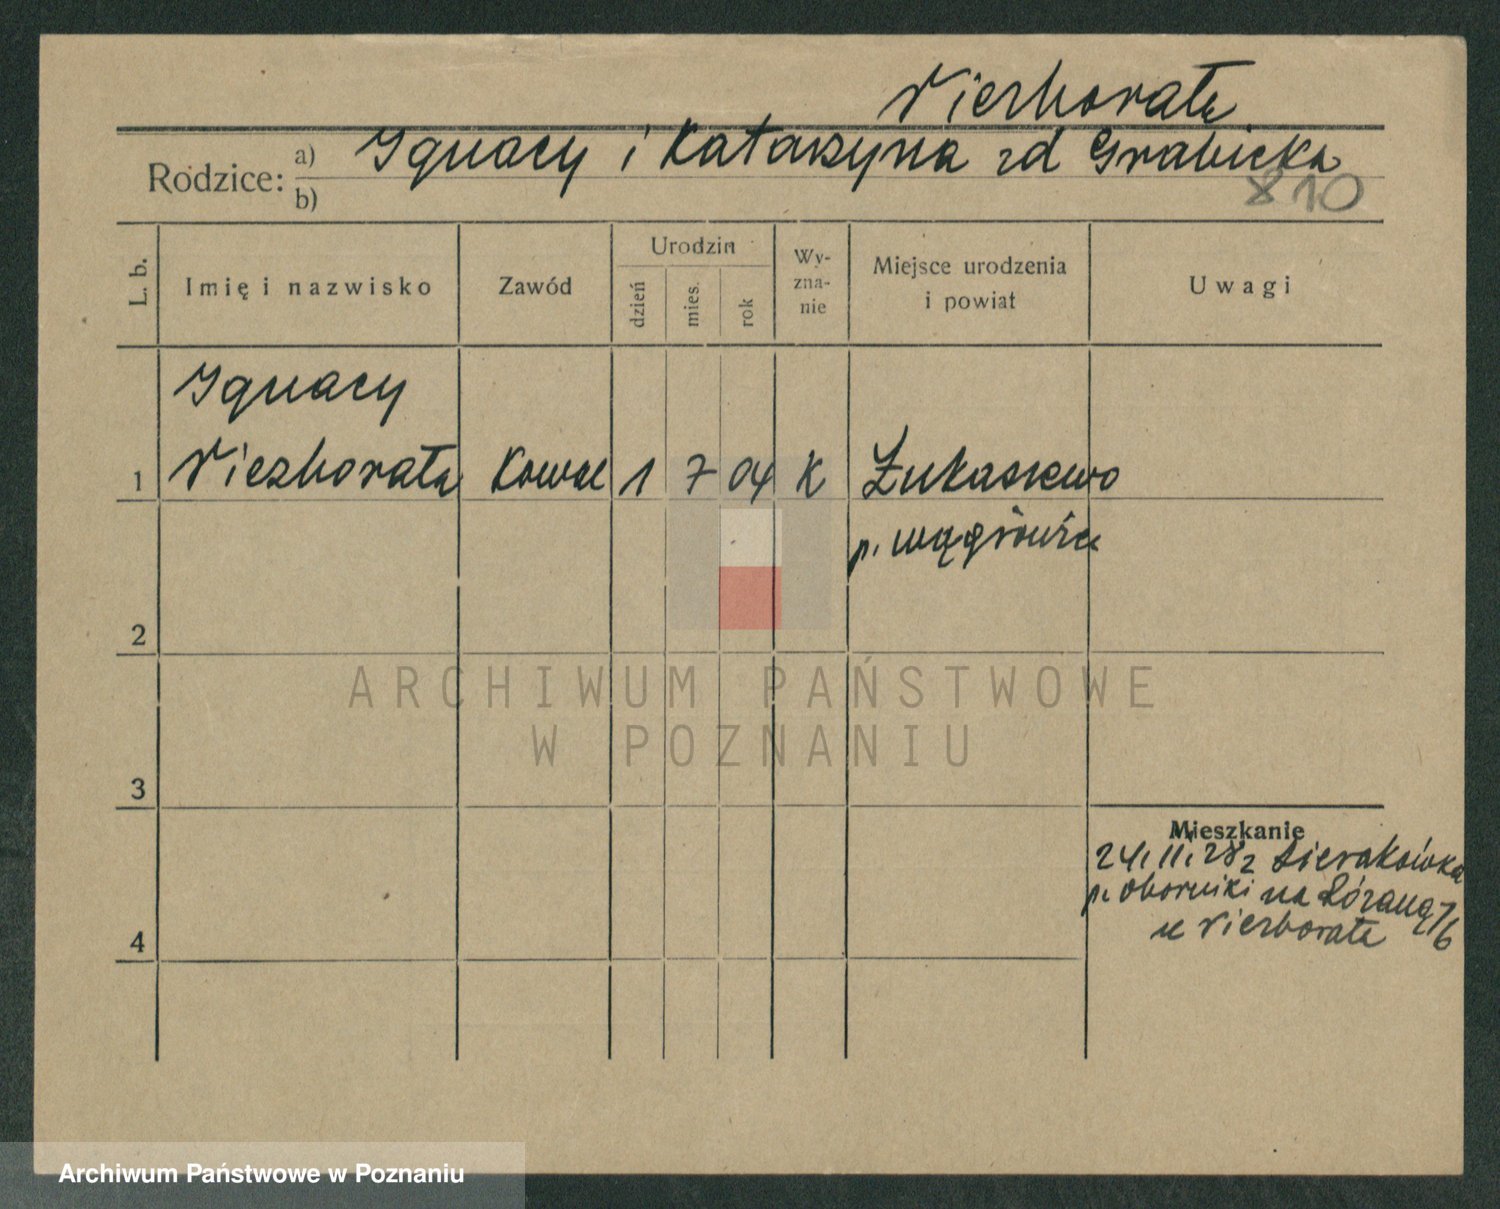 Nierhorała
Rodzice: a) Ignacy i Katarzyna zd Grabicka
b)
810
L. b.
Imię i nazwisko
Zawód
Urodzin
dzień
mies.
rok
Wy-
zna-
nie
Miejsce urodzenia
i powiat
Uwagi
Ignacy
1 Kowal 1 7 04 K Łukaszewo
p. Wągrówiec
2
ARCHIWUM PAŃSTWOWE
W POZNANIU
3
Mieszkanie
24.11.28 z Sierakówka
p. Oborniki na Różaną 7/6
4
Archiwum Państwowe w Poznaniu